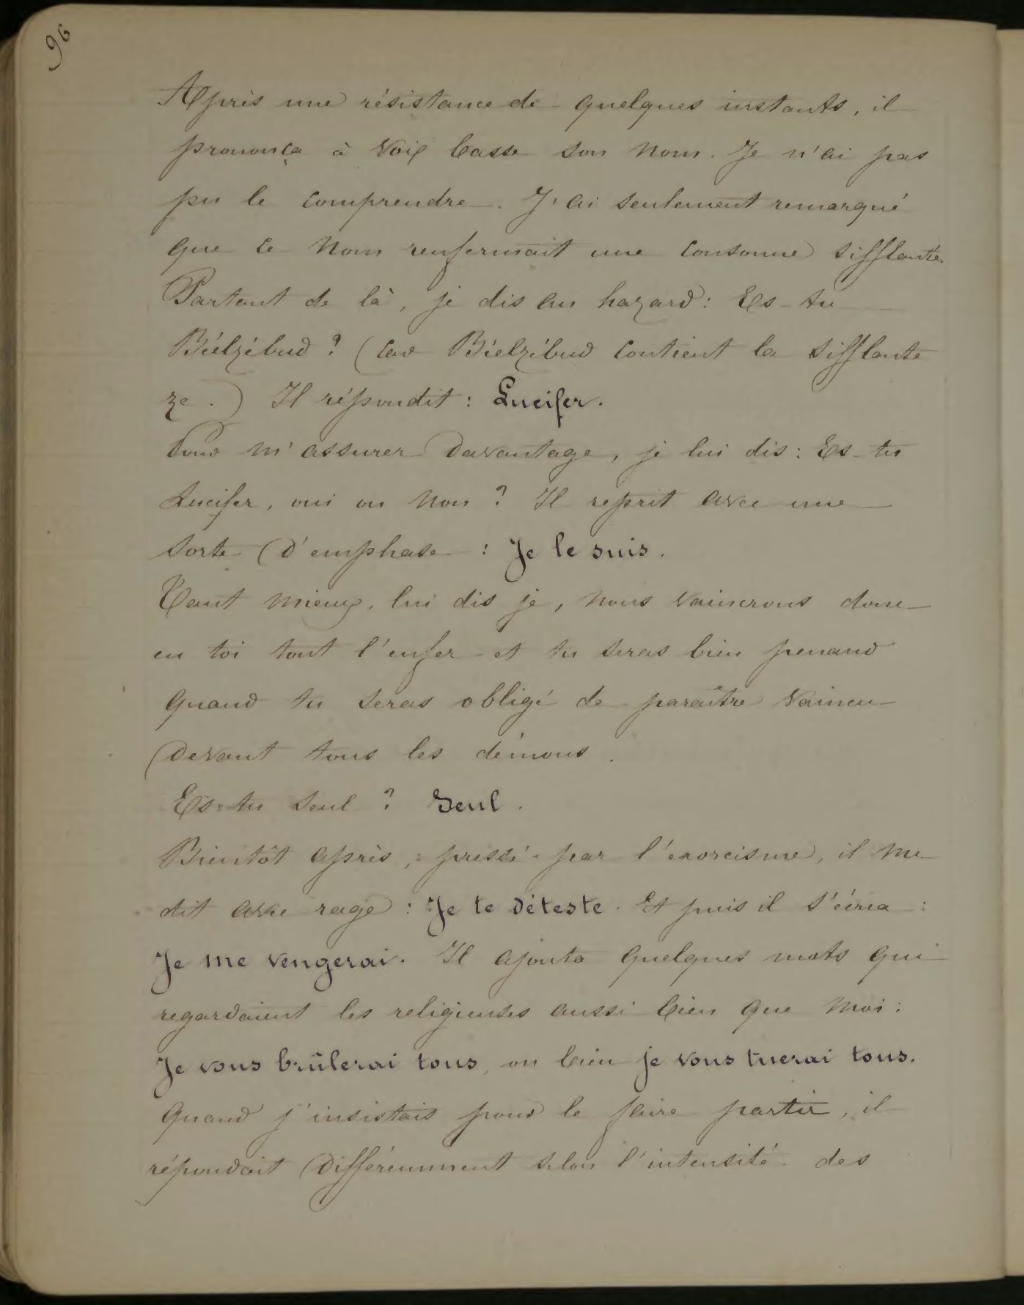 96
Après une résistance de quelques instants, il
prononça à voix basse son nom. Je n'ai pas
pu le comprendre. J'ai seulement remarqué
que ce nom renfermait une consonne sifflante.
Partant de là, je dis au hazard : Es-tu
Biélzébud ? (car Bielzébud contient la sifflante
ze.) Il répondit : Lucifer.
Pour m'assurer davantage, je lui dis : Es-tu
Lucifer, oui ou non ? Il reprit avec une
sorte d'emphase : Je le suis.
Tant mieux, lui dis je, nous vaincrons donc
en toi tout l'enfer et tu seras bien penaud
quand tu seras obligé de paraître vaincu
devant tous les démons.
Es-tu seul ? Seul.
Bientôt après, pressé par l'exorcisme, il me
dit avec rage : Je te déteste. Et puis il s'écria :
Je me vengerai. Il ajouta quelques mots qui
regardaient les religieuses aussi bien que moi :
Je vous brûlerai tous, ou bien je vous tuerai tous.
Quand j'insistais pour le faire partir, il
répondait différemment selon l'intensité des